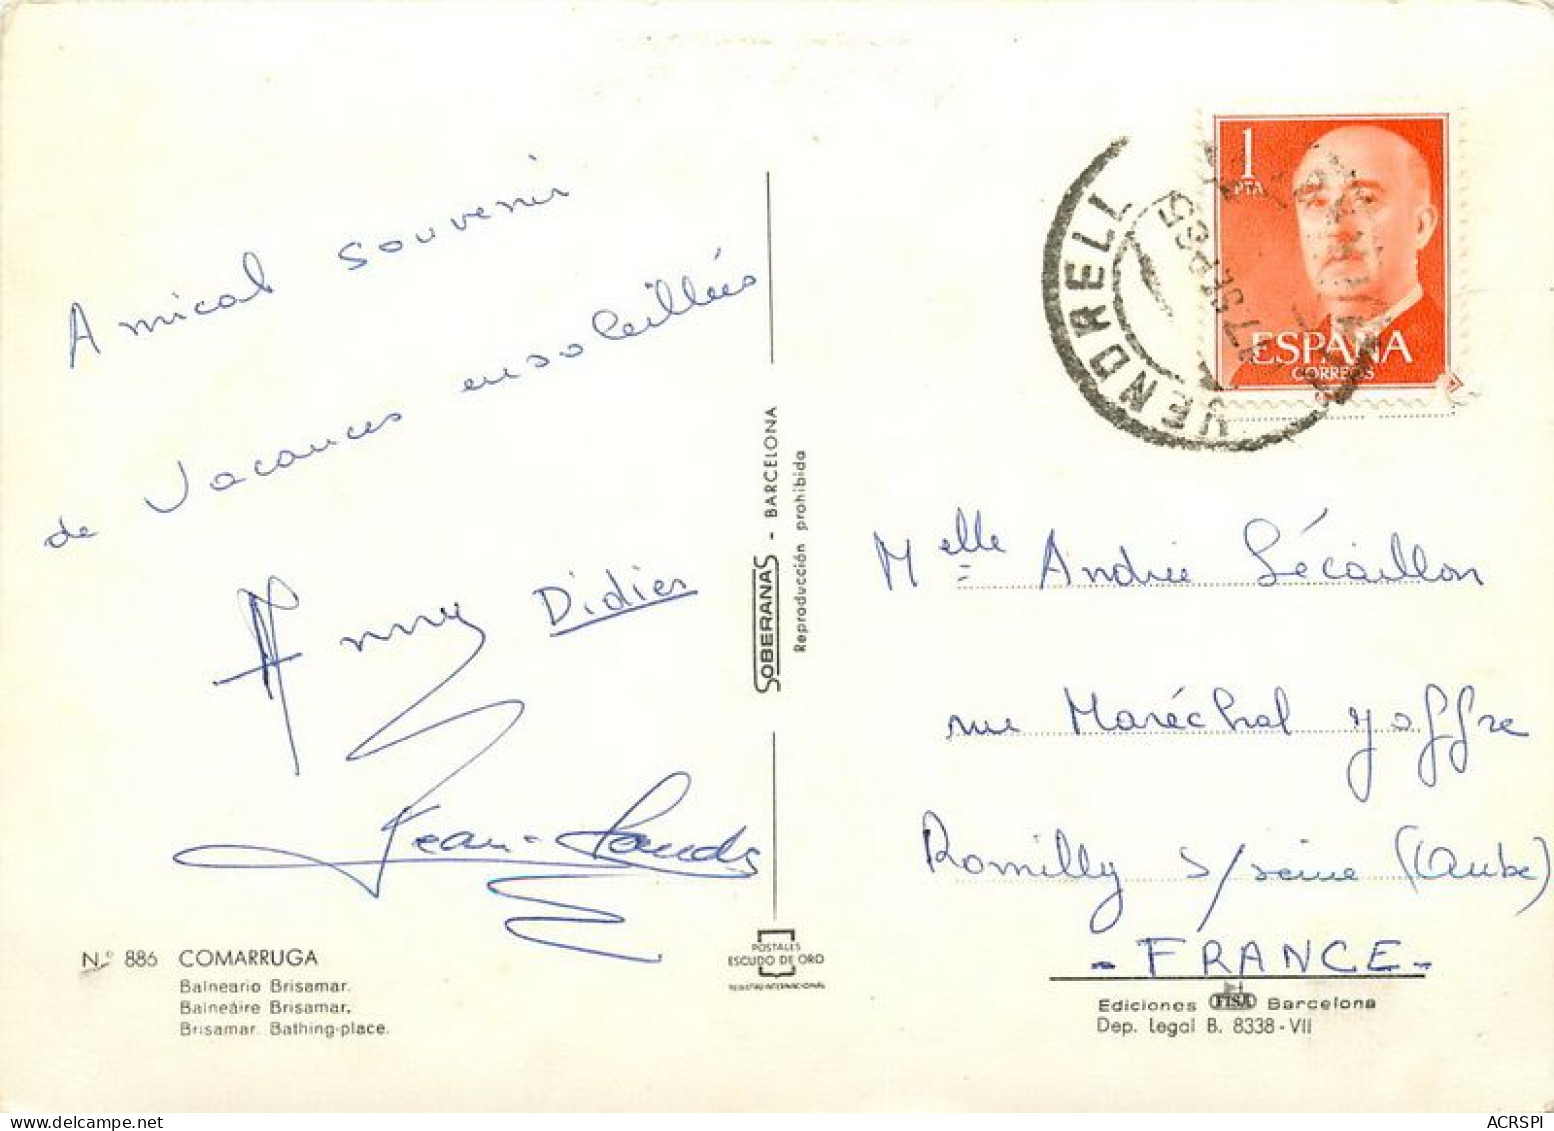 Amical souvenir
de Vacances ensoleillées
Anny Didier
Jean-Claude
Nº 886 COMARRUGA
Balneario Brisamar.
Balneáire Brisamar.
Brisamar. Bathing-place.
SOBERANAS - BARCELONA
Reproducción prohibida
POSTALES
ESCUDO DE ORO
REGISTRO INTERNACIONAL
1
PTA
ESPAÑA
CORREOS
VENDRELL
7 SEP 65
Melle Andrée Sécaillon
rue Maréchal Joffre
Romilly s/seine (Aube)
- FRANCE -
Ediciones FISA Barcelona
Dep. Legal B. 8338-VII
ACRSPI